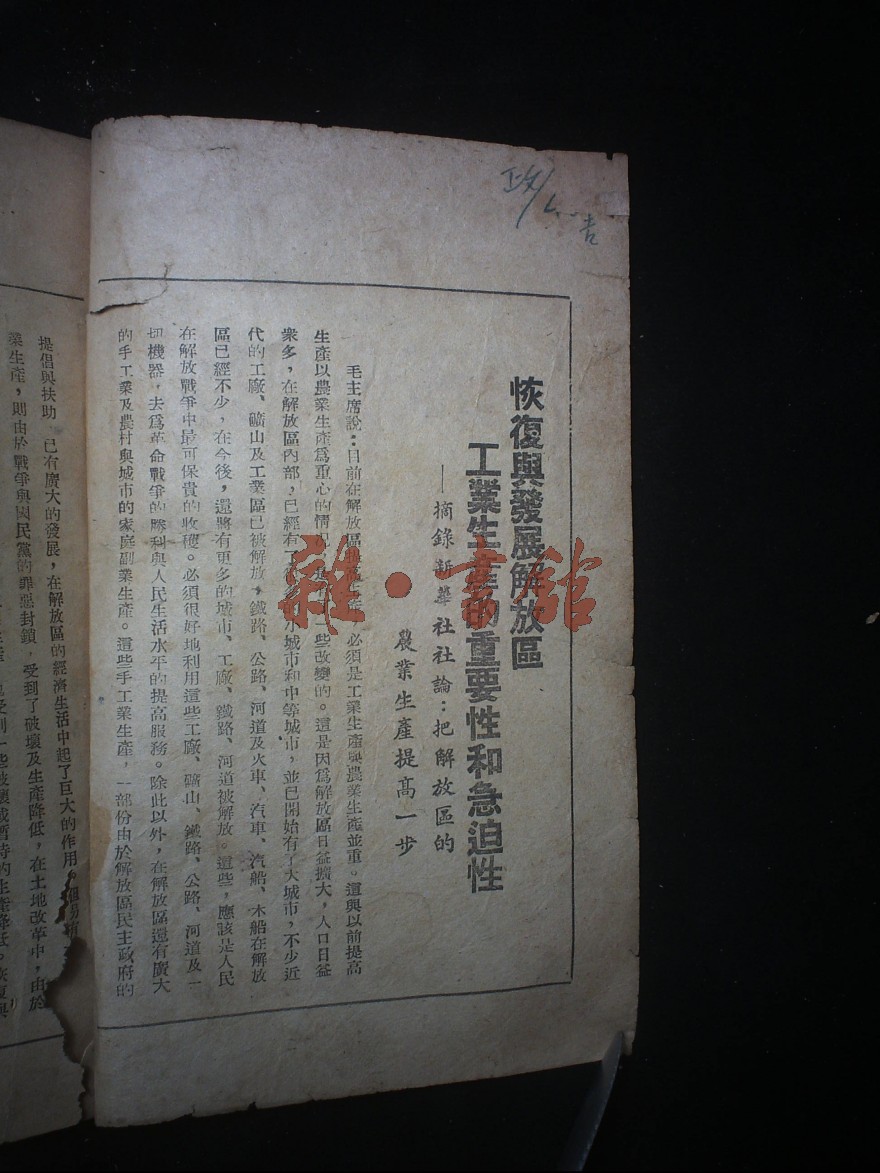 恢復與發展解放區
工業生產的重要性和急迫性
——摘錄新華社社論:把解放區的
農業生產提高一步
毛主席說:目前在解放區提高生產,必須是工業生產與農業生產並重。這與以前提高
生產以農業生產爲重心的情況,是有一些改變的。這是因爲解放區日益擴大,人口日益
衆多,在解放區內部,已經有了很多的小城市和中等城市,並已開始有了大城市,不少近
代的工廠、礦山及工業區已被解放,鐵路、公路、河道及火車、汽車、汽船、木船在解放
區已經不少,在今後,還將有更多的城市、工廠、鐵路、河道被解放。這些,應該是人民
在解放戰爭中最可保貴的收穫。必須很好地利用這些工廠、礦山、鐵路、公路、河道及一
切機器,去爲革命戰爭的勝利與人民生活水平的提高服務。除此以外,在解放區還有廣大
的手工業及農村與城市的家庭副業生產。這些手工業生產,一部份由於解放區民主政府的
提倡與扶助,已有廣大的發展,在解放區的經濟生活中起了巨大的作用。
業生產,則由於戰爭與國民黨的罪惡封鎖,受到了破壞及生產降低,在土地改革中,由於
雜·書館